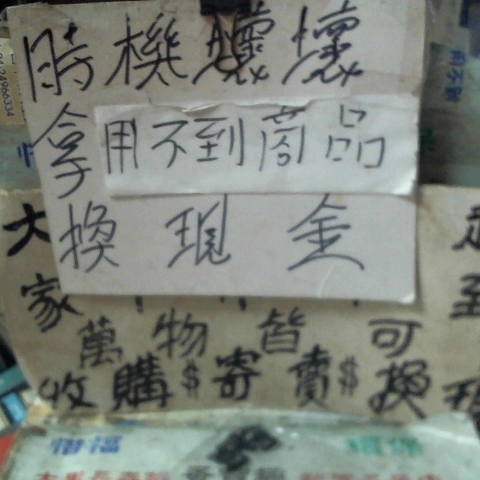 時機壞壞
拿用不到商品
換現金
大家
萬物皆可
收購$寄賣$換現
惜福 環保